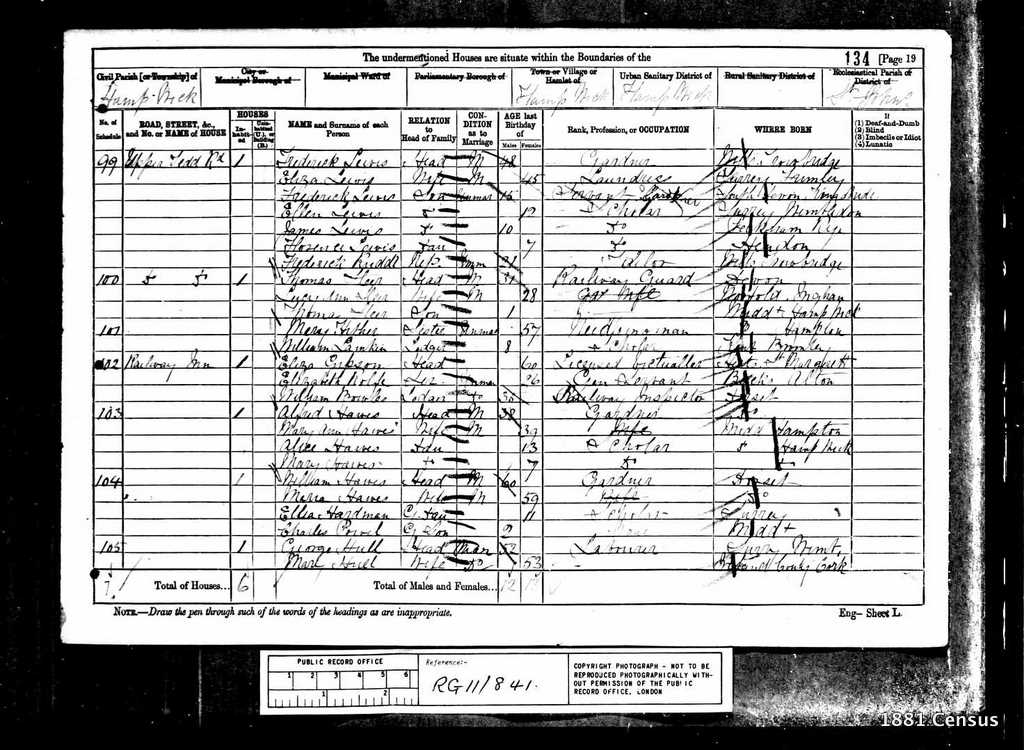 The undermentioned Houses are situate within the Boundaries of the
134 [Page 19
Civil Parish [or Township] of
City or Municipal Borough of
Municipal Ward of
Parliamentary Borough of
Town or Village or Hamlet of
Urban Sanitary District of
Rural Sanitary District of
Ecclesiastical Parish or District of
Hamp Wick
Hamp Wick
Hamp Wick
St Johns
No. of Schedule
ROAD, STREET, &c., and No. or NAME of HOUSE
HOUSES
Inhabited
Uninhabited (U.), or Building (B.)
NAME and Surname of each Person
RELATION to Head of Family
CONDITION as to Marriage
AGE last Birthday of
Males
Females
Rank, Profession, or OCCUPATION
WHERE BORN
If
(1) Deaf-and-Dumb
(2) Blind
(3) Imbecile or Idiot
(4) Lunatic
99 Upper Tedd Rd 1 Frederick Lewis Head M 48 Gardner Wilts Trowbridge
Eliza Lewis Wife M 45 Laundress Surrey Frimley
Frederick Lewis Son Unmar 15 Servant Gardner
Ellen Lewis 12 Scholar Surrey Wimbledon
James Lewis 10 Do
Florence Lewis Dau 7 Do Hendon
Frederick Ruddle 21 Wilts Trowbridge
100 1 Thomas Head M 31 Railway Guard Devon
Lucy Ann Wife M 28 Wife Norfolk Ingham
Thomas Son 1 Midd Hamp Wick
101 Mary 57 Needlewoman Hampton
William Larkin Lodger 8 Scholar Bromley
102 Railway Inn 1 Eliza Gibson Head 60 Licensed Victualler
Elizabeth Rolfe Unmar 26 Gen Servant Alton
William Bowles Lodger Do 30 Railway Inspector Dorset
103 1 Alfred Hawes Head M 38 Gardner Do
Mary Ann Hawes Wife M 39 Wife Midd Hampton
Alice Hawes Dau 13 Scholar Hamp Wick
Mary Hawes 7 Do
104 1 William Hawes Head M 60 Gardner Dorset
Maria Hawes Wife M 59 Wife Do
Ellen Hardman G. Dau 11 Scholar Surrey
Charles G. Son 2 Midd
105 1 George Hull Head 52 Labourer Surry
Mary Hull Wife Do 53 Ireland County Cork
7 Total of Houses... 6 Total of Males and Females... 12
NOTE.—Draw the pen through such of the words of the headings as are inappropriate.
Eng— Sheet L.
PUBLIC RECORD OFFICE
1 2 3 4 5 6
1 2
Reference:-
RG 11/841.
COPYRIGHT PHOTOGRAPH - NOT TO BE
REPRODUCED PHOTOGRAPHICALLY WITH-
OUT PERMISSION OF THE PUBLIC
RECORD OFFICE, LONDON
1881 Census